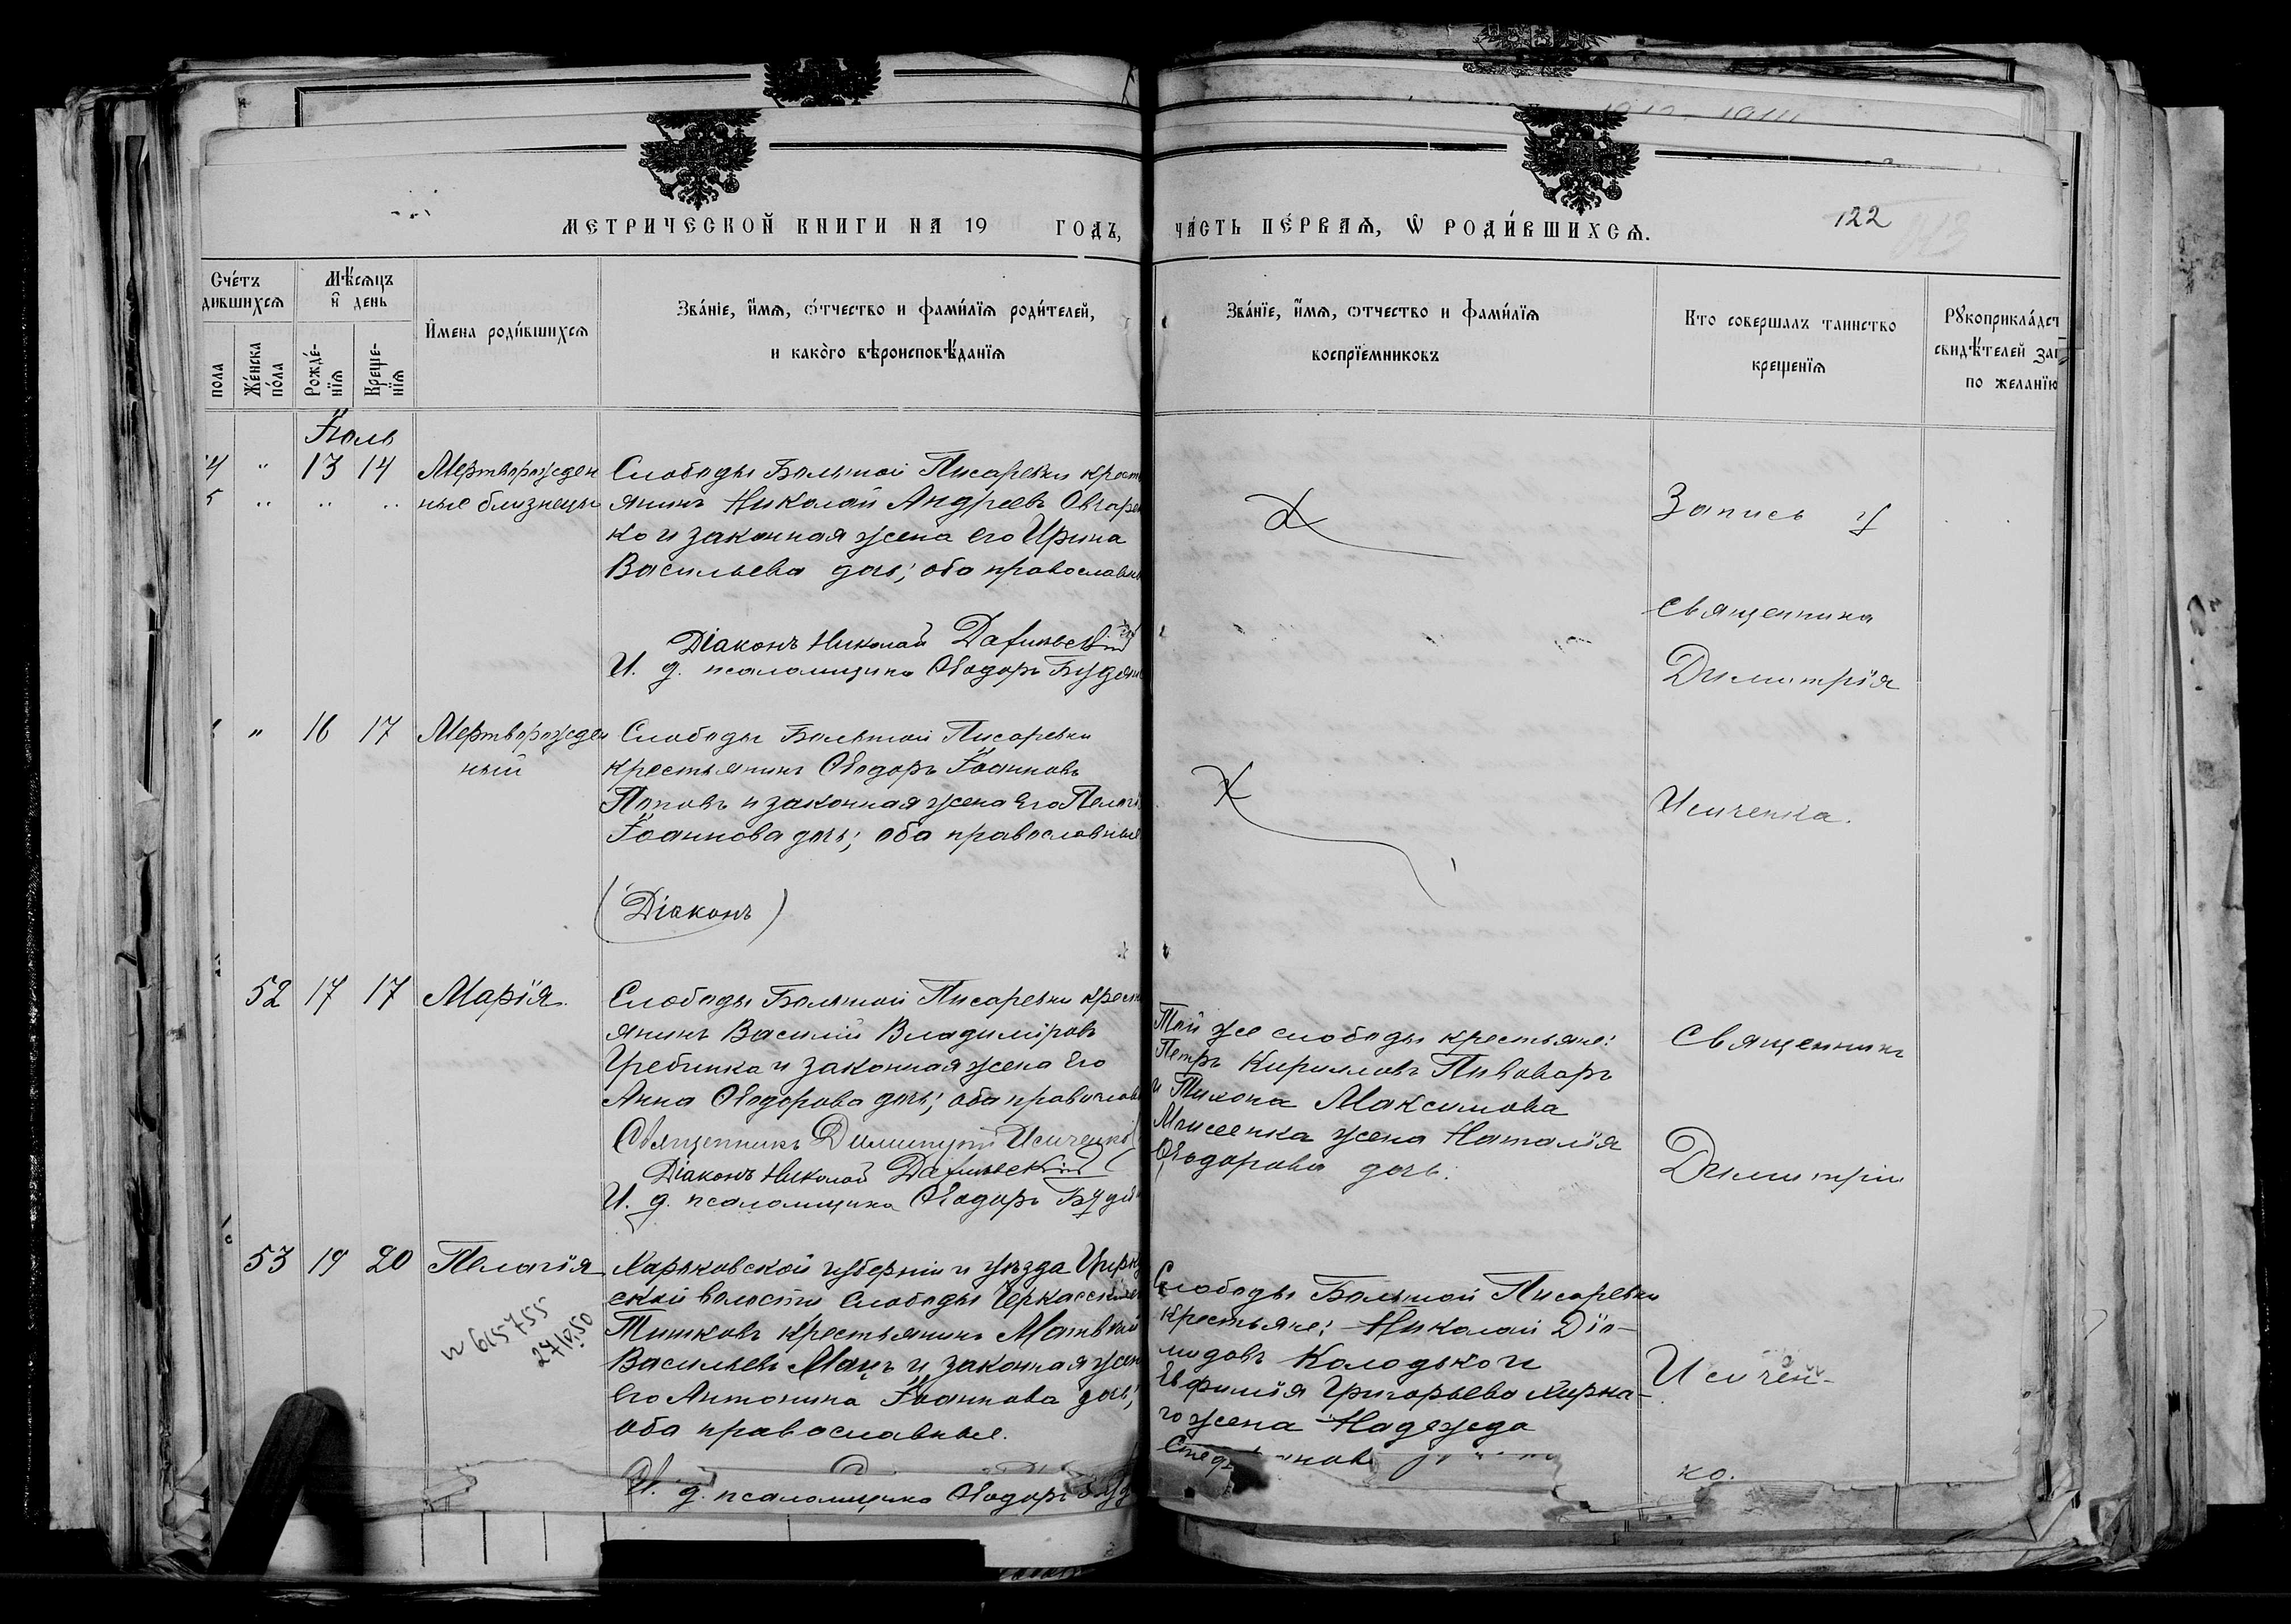 МЕТРИЧЕСКОЙ КНИГИ НА 19 ГОДЪ,
ЧА́СТЬ ПЕ́РВАѦ, Ѡ҆ РОДИ́ВШИХСѦ.
122
Сче́тъ
дившихсѧ
пола
Же́нска по́ла
Мѣ́сѧцъ и҆ день
Рожде́нїѧ
Креще́нїѧ
И҆мена роди́вшихсѧ
Зва́нїе, и҆́мѧ, ѻ҆́тчество и фами́лїѧ роди́телей,
и како́го вѣроисповѣ́данїѧ
Зва́нїе, и҆́мѧ, ѻтчество и фами́лїѧ
воспрїе́мниковъ
Кто соверша́лъ таинство
креще́нїѧ
Рꙋкоприкла́дст
свидѣ́телей за
по жела́нїю
Іюль
4 " 13 14 Мертворожден
5 " " " ные близнецы
Слободы Большой Писаревки крест
янинъ Николай Андреевъ Овчарен
ко и законная жена его Ирина
Васильева дочь; оба православн
Діаконъ Николай
И. д. псаломщика Ѳеодоръ
Запись
Священника
Димитрія
Исиченка.
" 16 17 Мертворожден
ный
Слободы Большой Писаревки
крестьянинъ Ѳеодоръ Іоанновъ
Поповъ и законная жена его Пелагі
Іоаннова дочь; оба православные
(Діаконъ)
52 17 17 Марія.
Слободы Большой Писаревки крест
янинъ Василій Владиміровъ
Гребинка и законная жена его
Анна Ѳеодорова дочь; оба православ
Священникъ Димитрій Исиченко
Діаконъ Николай
И. д. псаломщика Ѳеодоръ
Той же слободы крестьяне:
Петръ Кирилловъ Пивоваръ
и Тихона Максимова
жена Наталія
Ѳеодорова дочь.
Священникъ
Димитрій
53 19 20 Пелагія
N 615755
27/V.50
Харьковской губерніи и уѣзда Цирку
ской волости слободы Черкасских
Тишковъ крестьянинъ Матвѣй
Васильевъ Мацъ и законная жен
его Антонина Іоаннова дочь;
оба православные.
И. д. псаломщика Ѳеодоръ
Слободы Большой Писаревки
крестьяне: Николай Діо-
мидовъ Колодько и
Евфимія Григорьева Жирна-
го жена Надежда
Исичен-
ко.